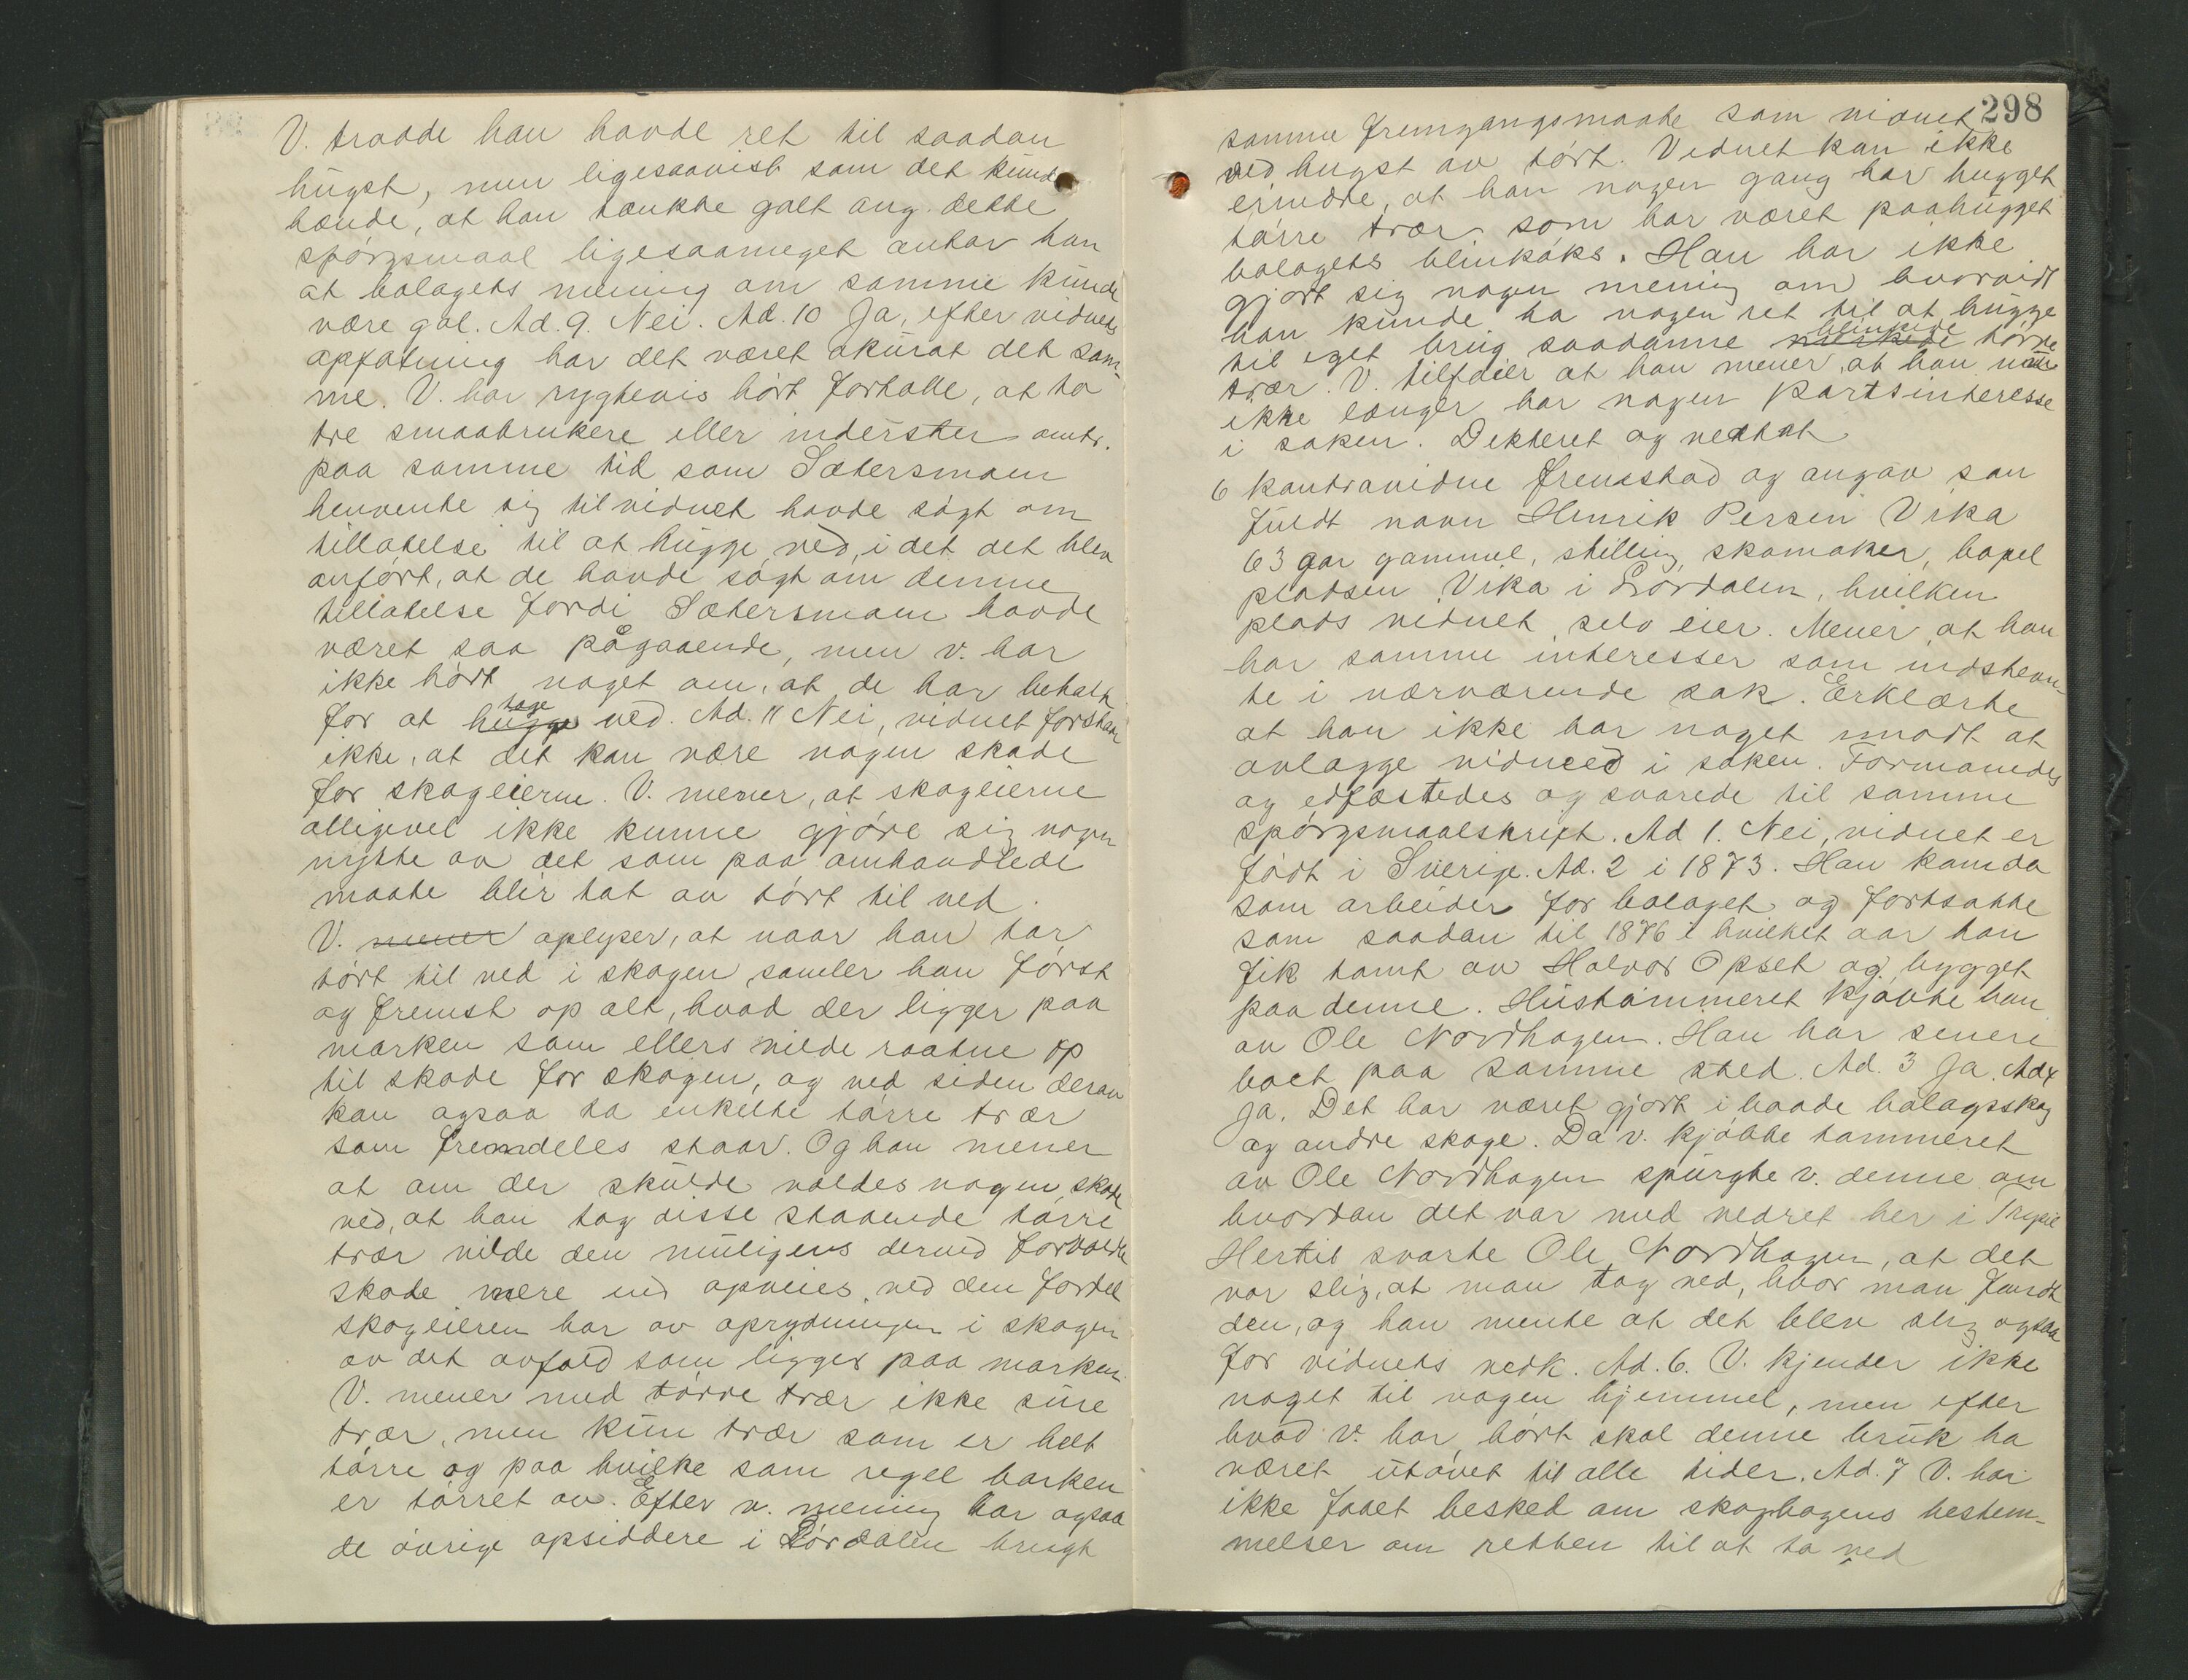 V. trodde han havde ret til saadan
hugst, men ligesaavist som det kunde
hænde, at han tænkte galt ang. dette
spørgsmaal ligesaameget antar han
at bolagets mening om samme kunde
være gal. Ad. 9. Nei. Ad. 10 Ja, efter vidnets
opfatning har det været akurat det sam-
me. V. har rygtevis hørt fortalle, at to
tre smaabrukere eller inderster omtr.
paa samme tid som Sætersmoen
henvente sig til vidnet havde søgt om
tillatelse til at hugge ved, i det det blev
anført, at de havde søgt om denne
tillatelse fordi Sætersmoen havde
været saa pågaaende, men v. har
ikke hørt noget om, at de har betalt
for at hugge tage ved. Ad. 11 Nei, vidnet forstaar
ikke, at det kan være nogen skade
for skogeierne. V. mener, at skogeierne
alligevel ikke kunne gjøre sig nogen
nytte av det som paa omhandlede
maate blir tat av tørt til ved.
V. mener oplyser, at naar han tar
tørt til ved i skogen samler han først
og fremst op alt, hvad der ligger paa
marken som ellers vilde raatne op
til skade for skogen, og ved siden derav
kan ogsaa ta enkelte tørre trær
som fremdeles staar. Og han mener
at om der skulde voldes nogen skade
ved, at han tog disse staaende tørre
trær vilde den muligens derved forvoldte
skade mere end opveies ved den fordel
skogeieren har av oprydningen i skogen
av det avfald som ligger paa marken.
V. mener med tørre trær ikke sure
trær, men kun trær som er helt
tørre og paa hvilke som regel barken
er tørret av. Efter v. mening har ogsaa
de øvrige opsiddere i Lørdalen brugt
298
samme fremgangsmaate som vidnet
ved hugst av tørt. Vidnet kan ikke
erindre, at han nogen gang har hugget
tørre trær som har været paahugget
bolagets blinkøks. Han har ikke
gjort sig nogen mening om hvorvidt
han kunde ha nogen ret til at hugge
til eget brug saadanne blinkede tørre
trær. V. tilføier at han mener, at han nu
ikke længer har nogen partsinteresse
i saken. Dikteret og vedtat
6 kontravidne fremstod og angav som
fuldt navn Henrik Persen Vika
63 aar gammel, stilling skomaker, bopel
pladsen Vika i Lørdalen, hvilken
plads vidnet selv eier. Mener, at han
har samme interesser som indstevn-
te i nærværende sak. Erklærte
at han ikke har noget imodt at
avlægge vidneed i saken. Formanedes
og edfæstedes og svarede til samme
spørgsmaalskrift. Ad 1. Nei, vidnet er
født i Sverige. Ad. 2 i 1873. Han kom da
som arbeider for bolaget og fortsatte
som saadan til 1876 i hvilket aar han
fik tomt av Halvor Opset og bygget
paa denne. Hustømmeret kjøbte han
av Ole Nordhagen. Han har senere
boet paa samme sted. Ad. 3 Ja. Ad 4
Ja. Det har været gjort i baade bolagsskog
og andre skoge. Da v. kjøbte tømmeret
av Ole Nordhagen spurgte v. denne om
hvordan det var med vedret her i Trysil
Hertil svarte Ole Nordhagen, at det
var slig, at man tog ved, hvor man fandt
den, og han mente at det blev slig ogsaa
for vidnets vedk. Ad. 6. V. kjender ikke
noget til nogen hjemmel, men efter
hvad v. har hørt skal denne bruk ha
været utøvet til alle tider. Ad. 7 V. har
ikke faaet besked om skogbogens bestem-
melser om retten til at ta ved